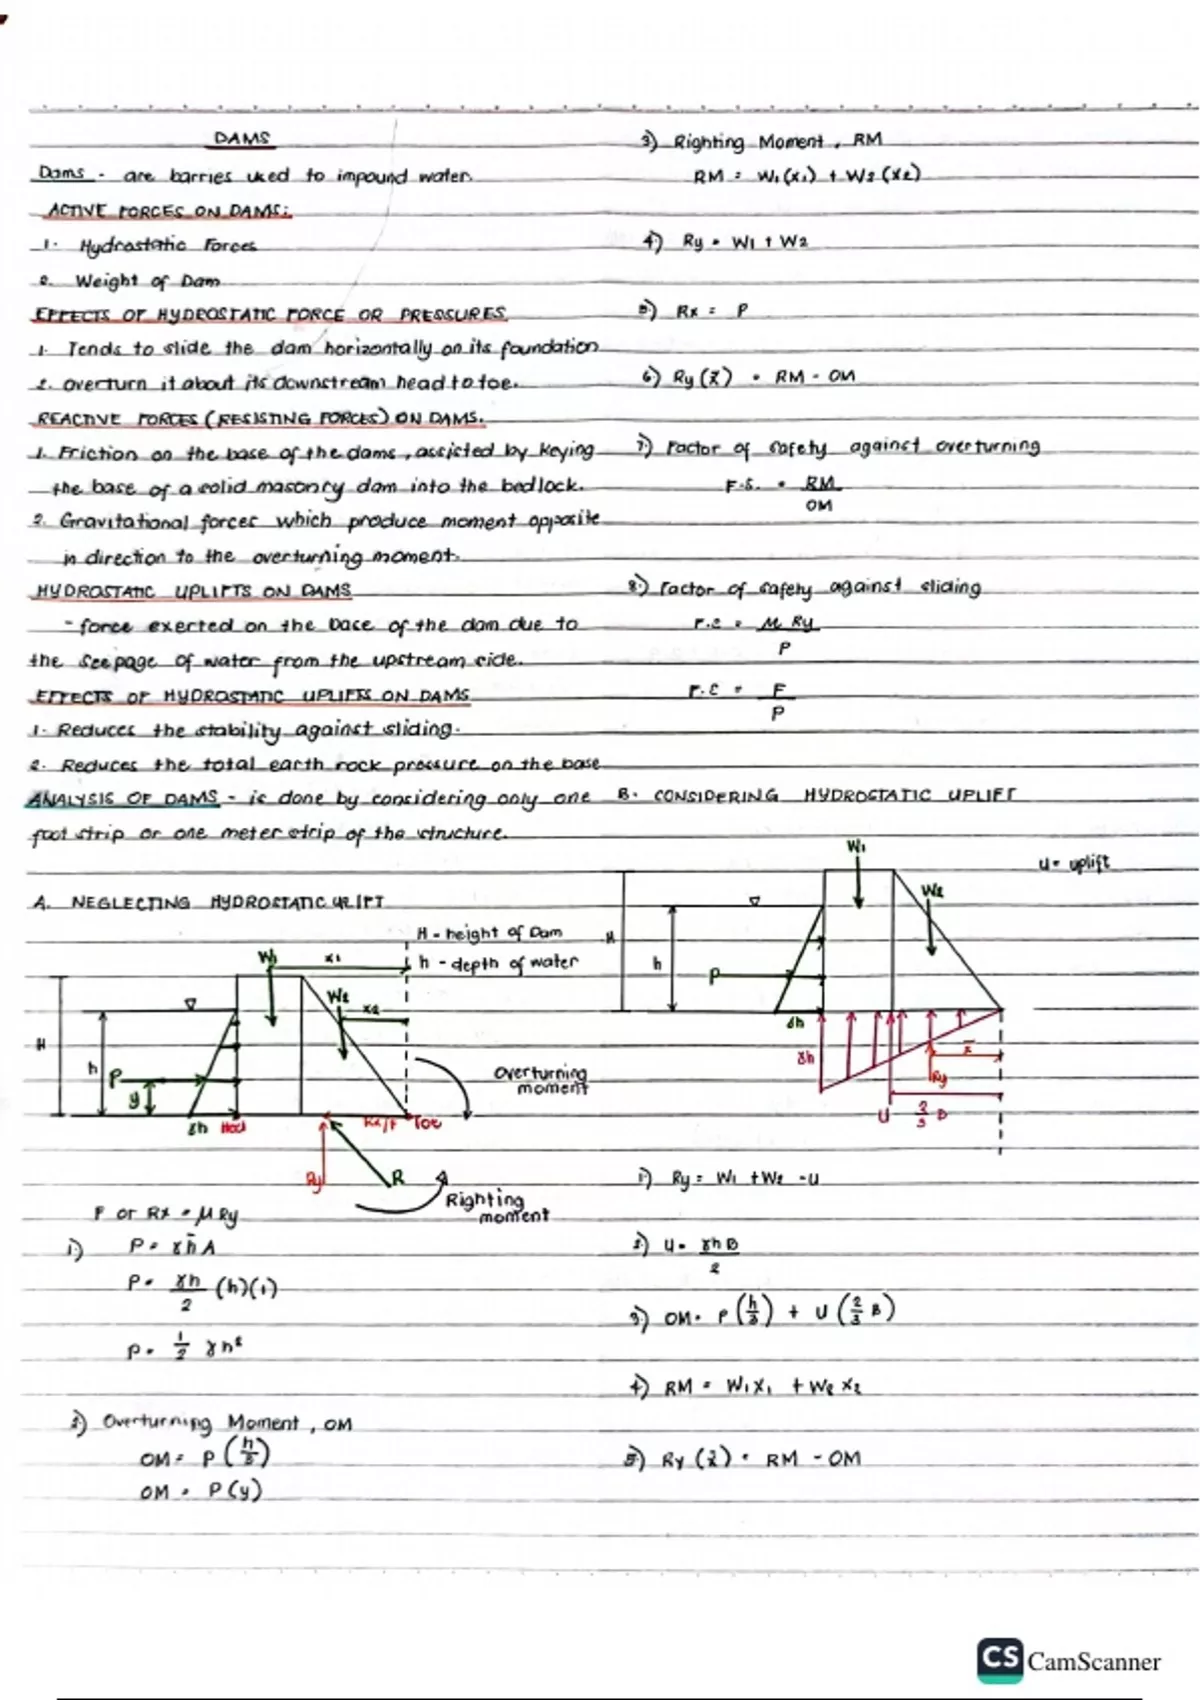 DAMS
Dams - are barries used to impound water.
ACTIVE FORCES ON DAMS:
1. Hydrostatic Forces
2. Weight of Dam
EFFECTS OF HYDROSTATIC FORCE OR PRESSURES
1. Tends to slide the dam horizontally on its foundation
2. overturn it about its downstream head to toe.
REACTIVE FORCES (RESISTING FORCES) ON DAMS.
1. Friction on the base of the dams, assisted by keying
the base of a solid masonry dam into the bedlock.
2. Gravitational forces which produce moment opposite
in direction to the overturning moment.
HYDROSTATIC UPLIFTS ON DAMS
- force exerted on the base of the dam due to
the seepage of water from the upstream side.
EFFECTS OF HYDROSTATIC UPLIFTS ON DAMS
1. Reduces the stability against sliding.
2. Reduces the total earth rock pressure on the base
ANALYSIS OF DAMS - is done by considering only one
foot strip or one meter strip of the structure.
A. NEGLECTING HYDROSTATIC UPLIFT
H - height of Dam
h - depth of water
W1
x1
W2
x2
H
h
P
y
γh
Heel
Rx/F
Toe
Overturning
moment
Ry
R
Righting
moment
F or Rx = μ Ry
1.) P = γh̄A
P = γh/2 (h)(1)
P = 1/2 γh²
2.) Overturning Moment, OM
OM = P (h/3)
OM = P(y)
3.) Righting Moment, RM
RM = W1(x1) + W2(x2)
4.) Ry = W1 + W2
5.) Rx = P
6.) Ry(x̄) = RM - OM
7.) Factor of safety against overturning
F.S. = RM/OM
8.) Factor of safety against sliding
F.S = μ Ry/P
F.S = F/P
B. CONSIDERING HYDROSTATIC UPLIFT
W1
U = uplift
W2
H
h
P
γh
γh
x̄
Ry
U
2/3 B
1.) Ry = W1 + W2 - U
2.) U = γhB/2
3.) OM = P (h/3) + U (2/3 B)
4.) RM = W1X1 + W2X2
5.) Ry (x̄) = RM - OM
CS CamScanner